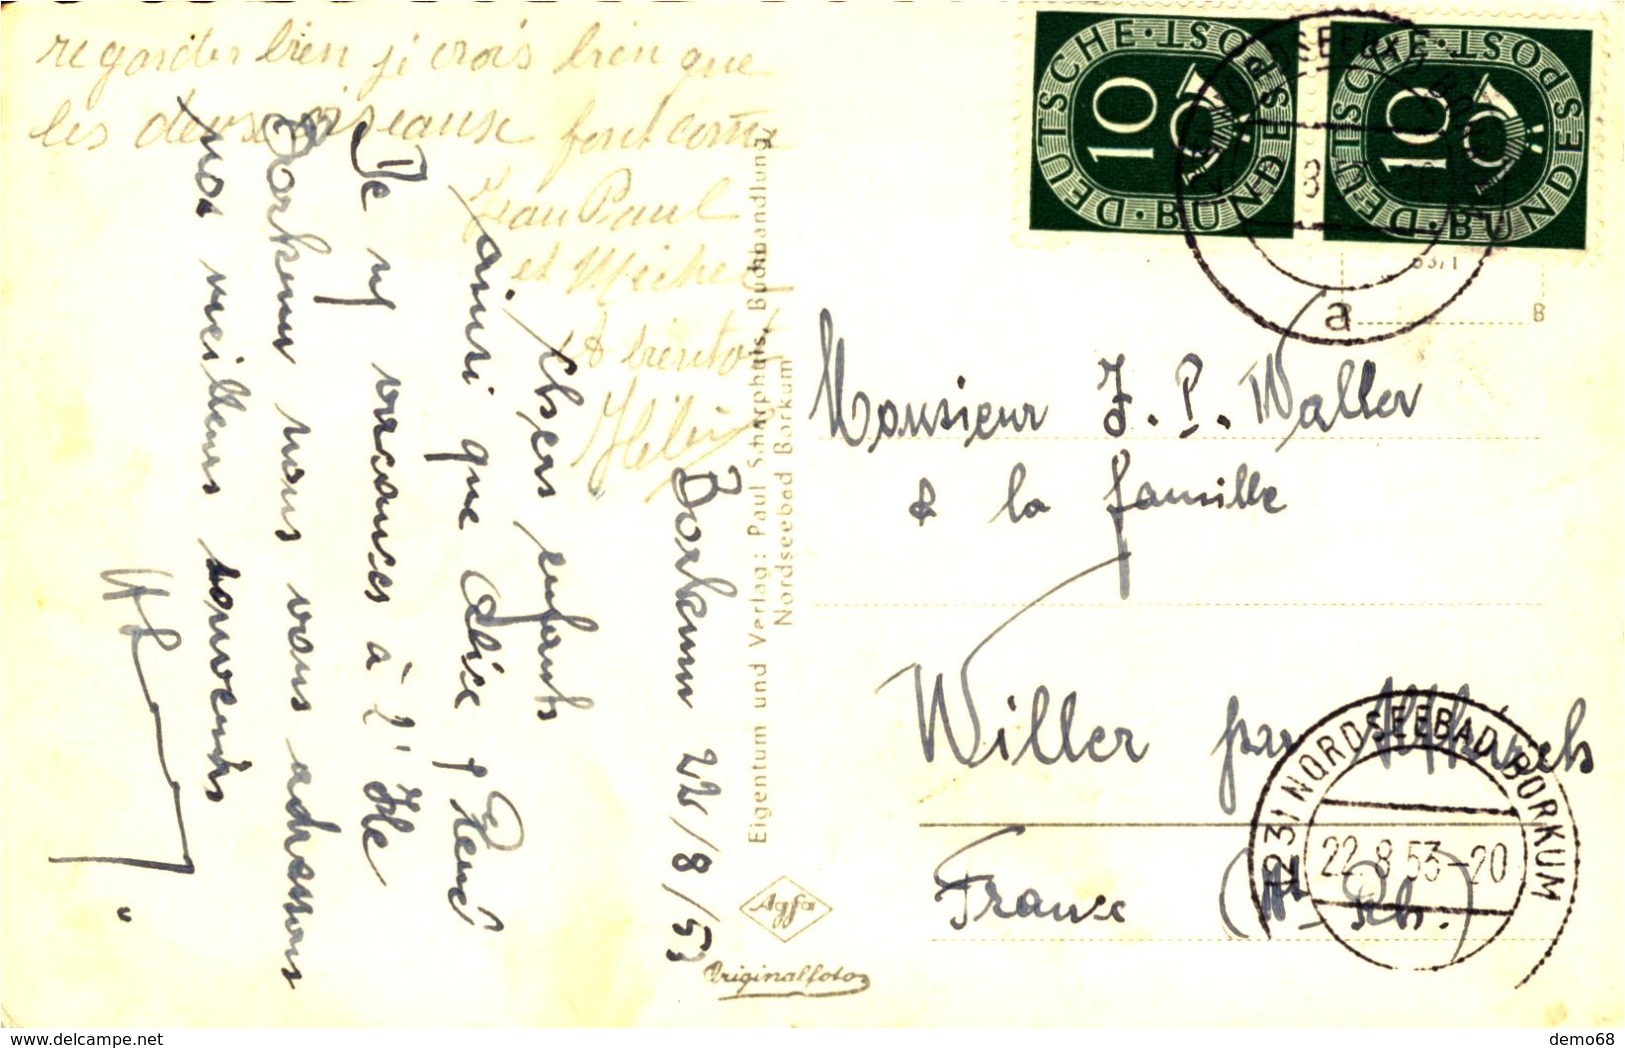 regarder bien je crois bien que
les deux oiseaux font com
Jean Paul
et Michel
à bientôt
Borkum 22/8/53
Chers enfants
ainsi que Alice & René
De ns vacances à l'Ile
Borkum nous vous adressons
nos meilleurs souvenirs
Eigentum und Verlag: Paul Scharphuis, Buchhandlung,
Nordseebad Borkum
Agfa
Originalfoto
DEUTSCHE BUNDESPOST
10
DEUTSCHE BUNDESPOST
10
a
B
Monsieur J. P. Waller
& la famille
Willer par Altkirch
France (Ht Rh.)
(23) NORDSEEBAD BORKUM
22.8.53-20
www.delcampe.net
demo68